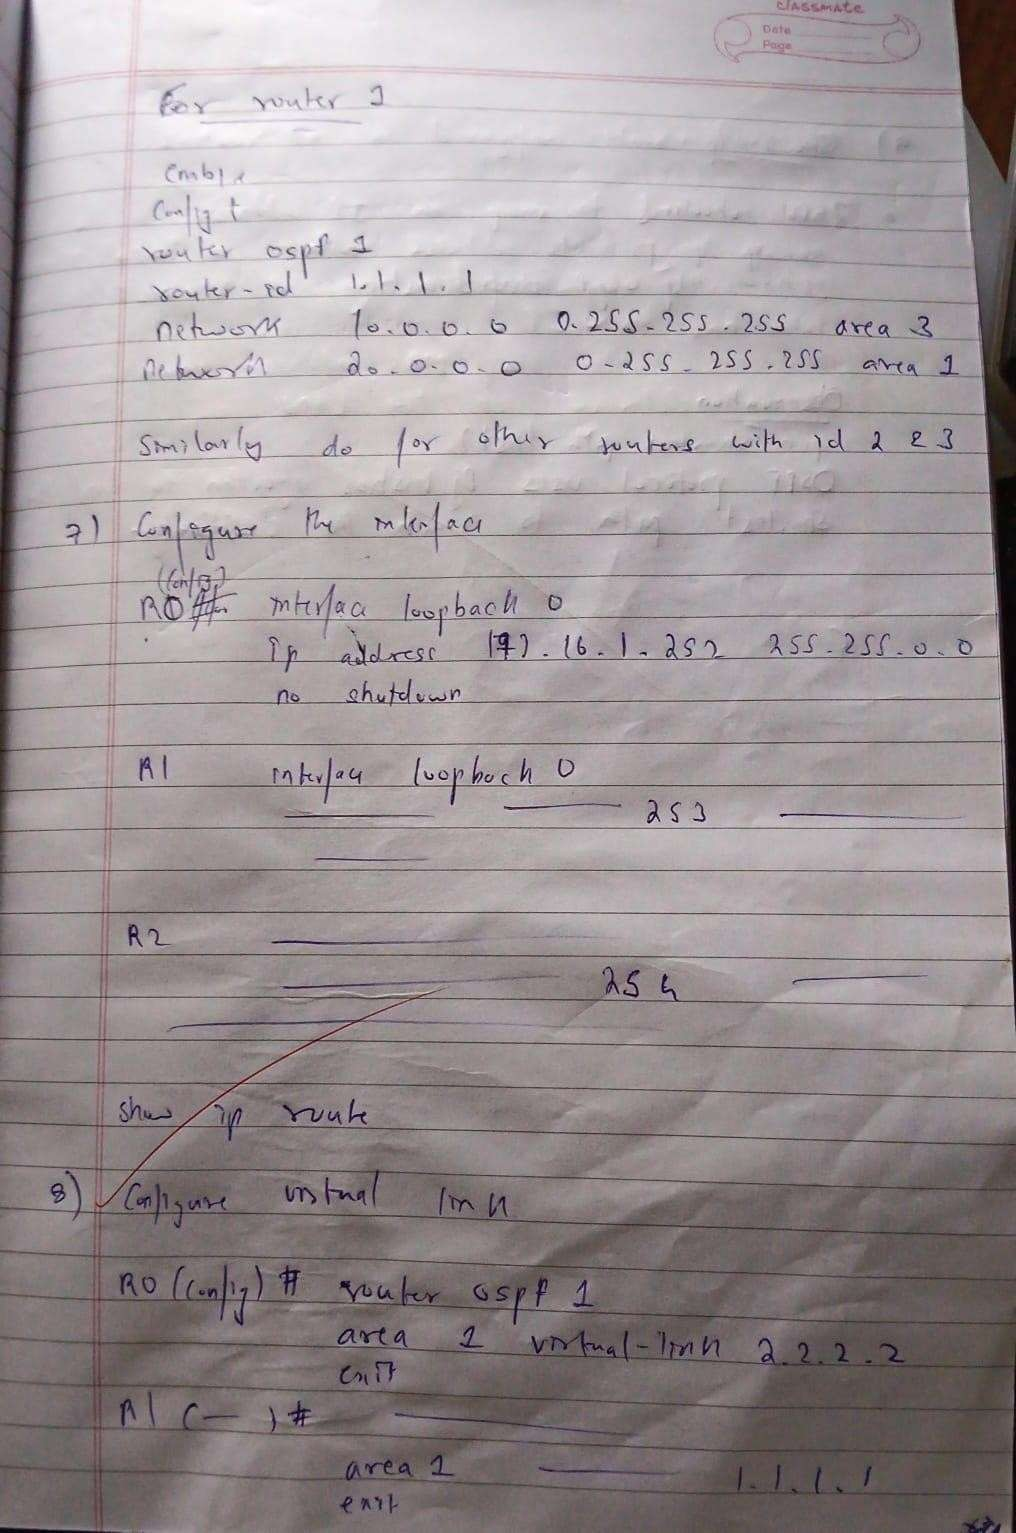 classmate
Date
Page
For router 1
enable
Config t
router ospf 1
router-id 1.1.1.1
network 10.0.0.0 0.255.255.255 area 3
network 20.0.0.0 0.255.255.255 area 1
Similarly do for other routers with id 2 & 3
7) Configure the interface
(Config)
R0 # interface loopback 0
ip address 172.16.1.252 255.255.0.0
no shutdown
R1 interface loopback 0
253
R2
254
show ip route
8) Configure virtual link
R0 (Config) # router ospf 1
area 1 virtual-link 2.2.2.2
exit
R1 ( — ) #
area 1 — 1.1.1.1
exit